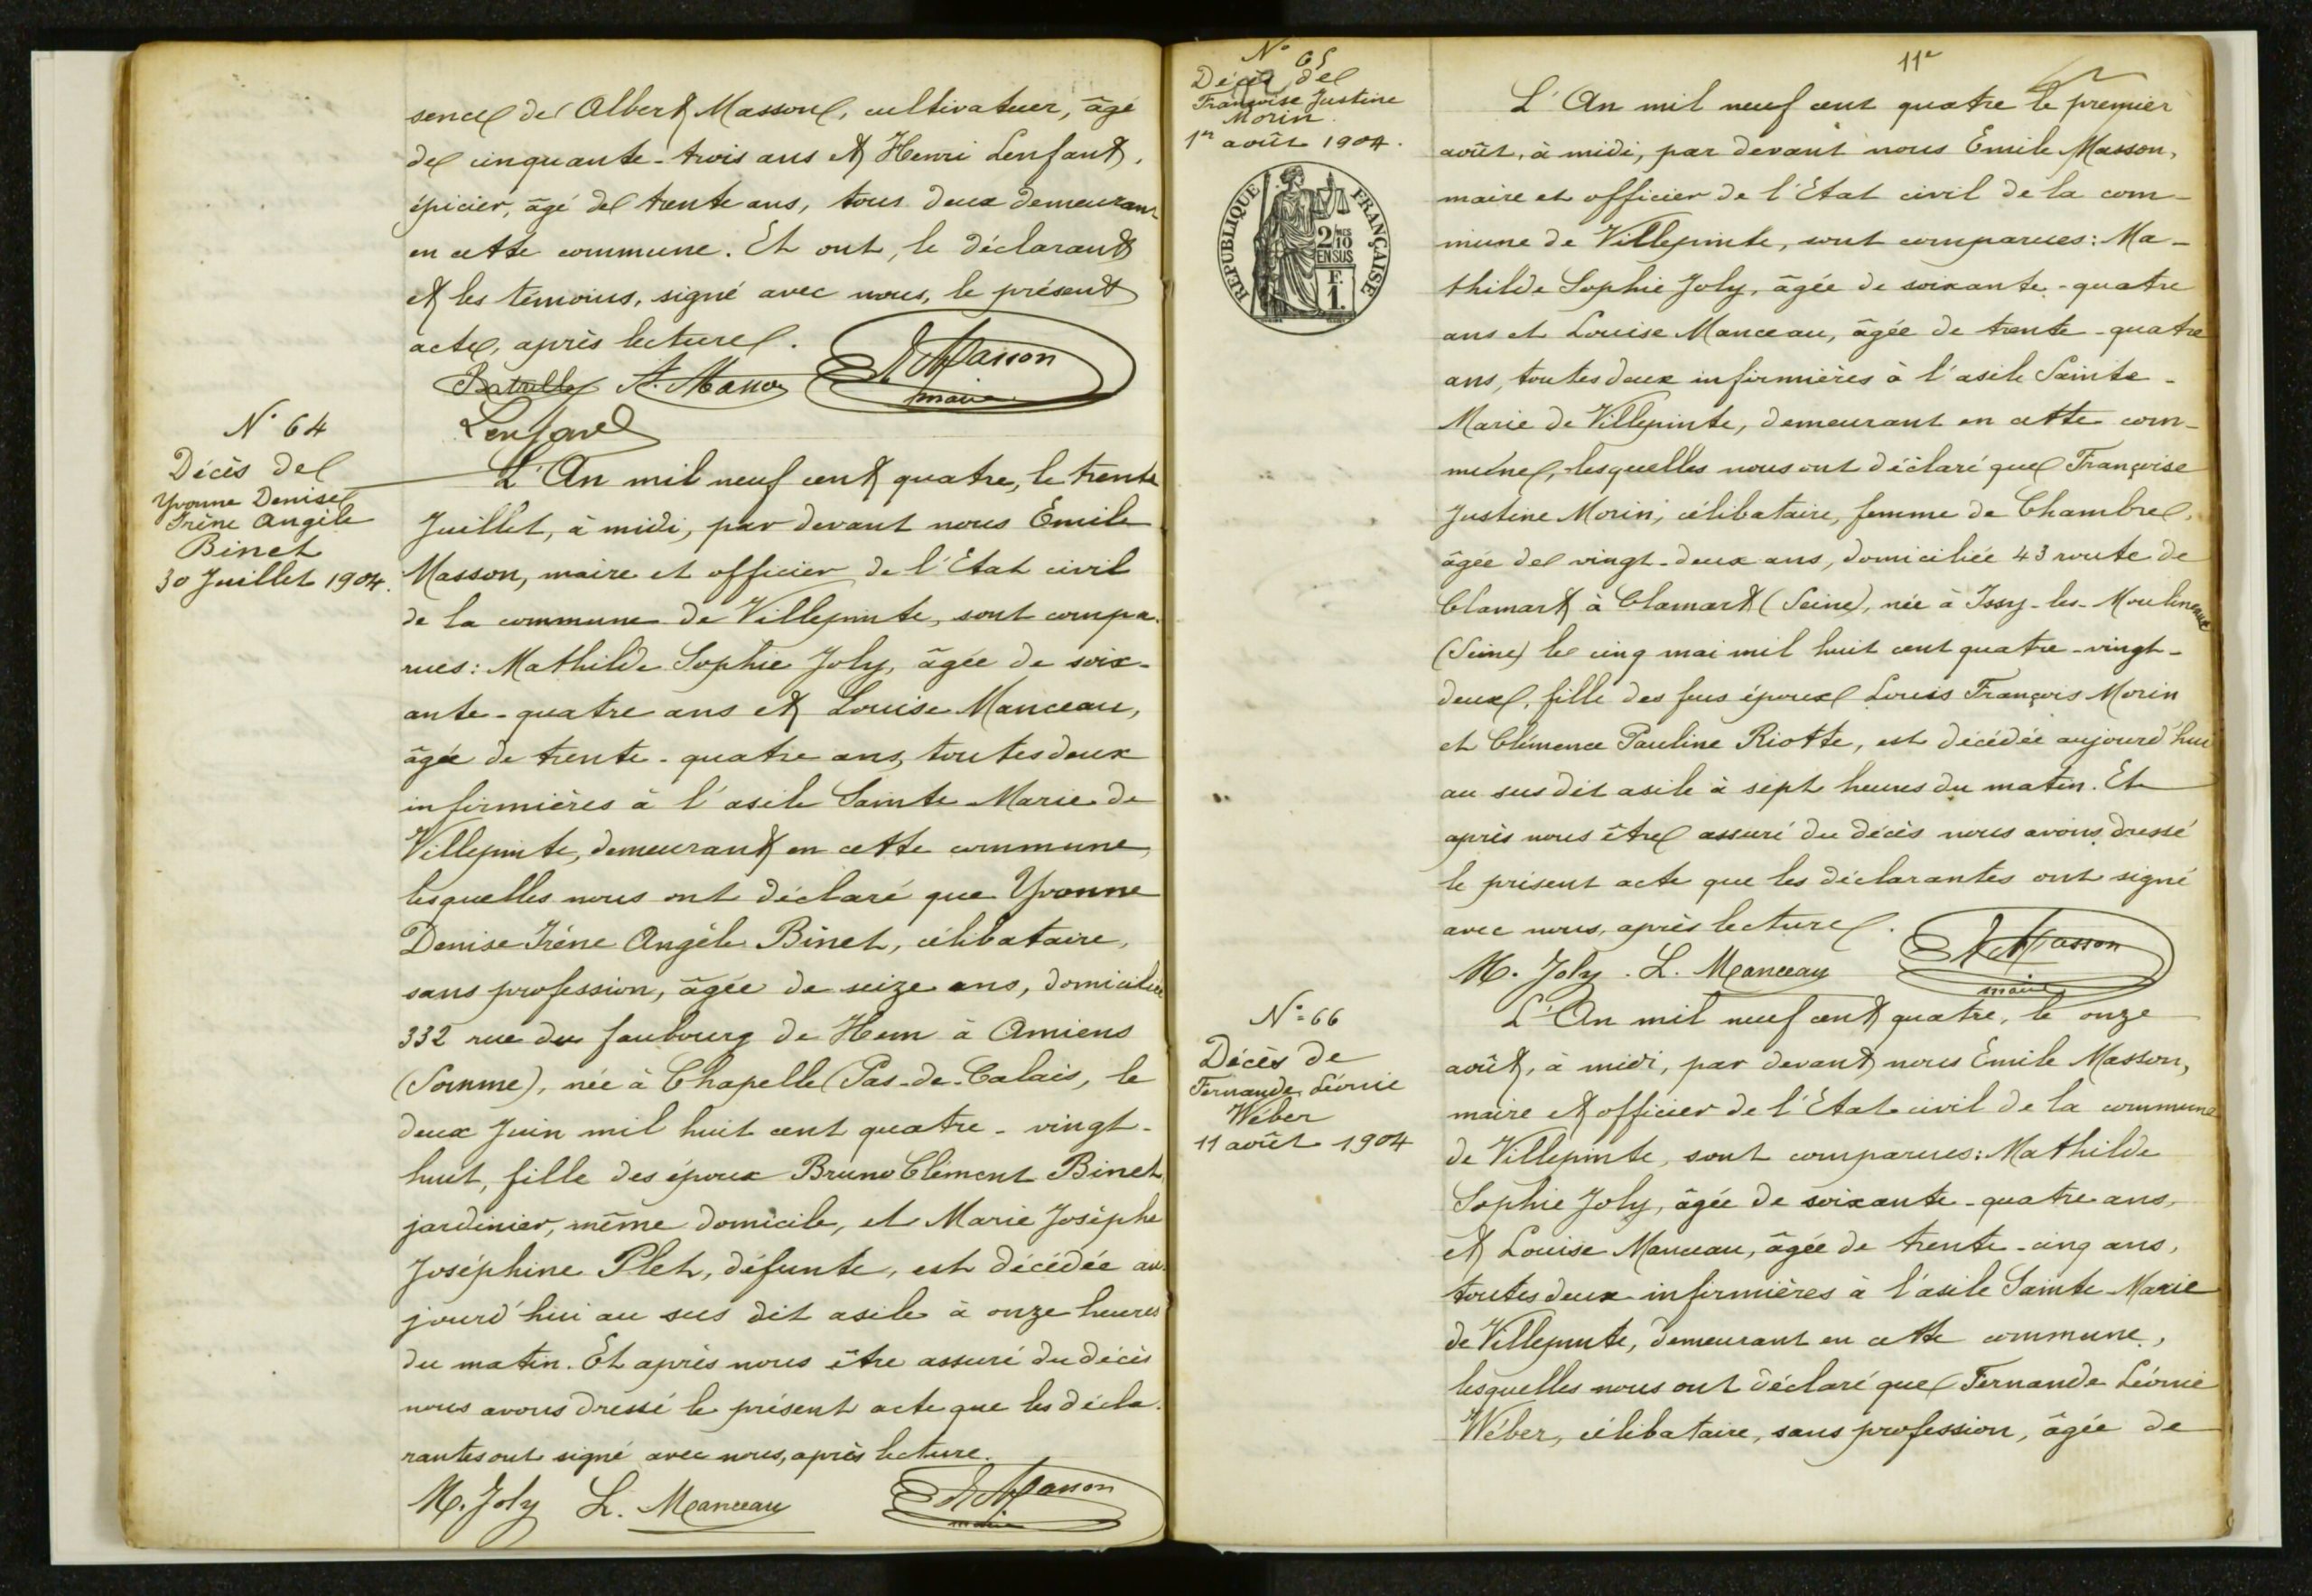 sence de Albert Masson, cultivatuer, âgé
de cinquante-trois ans et Henri Lenfant,
épicier, âgé de trente ans, tous deux demeurant
en cette commune. Et ont, le déclarant
et les témoins, signé avec nous, le présent
acte, après lecture.
A. Masson E. Masson
maire
Lenfant
N° 64
Décès de
Yvonne Denise
Irène Angèle
Binet
30 Juillet 1904.
L'An mil neuf cent quatre, le trente
Juillet, à midi, par devant nous Emile
Masson, maire et officier de l'Etat civil
de la commune de Villepinte, sont compa-
rues: Mathilde Sophie Joly, âgée de soix-
ante-quatre ans et Louise Manceau,
âgée de trente-quatre ans, toutes deux
infirmières à l'asile Sainte-Marie de
Villepinte, demeurant en cette commune,
lesquelles nous ont déclaré que Yvonne
Denise Irène Angèle Binet, célibataire,
sans profession, âgée de seize ans, domiciliée
332 rue du faubourg de Hem à Amiens
(Somme), née à Chapelle (Pas-de-Calais, le
deux Juin mil huit cent quatre-vingt-
huit, fille des époux Bruno Clément Binet,
jardinier, même domicile, et Marie Josèphe
Joséphine Plet, défunte, est décédée au-
jourd'hui au sus dit asile à onze heures
du matin. Et après nous être assuré du décès
nous avons dressé le présent acte que les décla-
rantes ont signé avec nous, après lecture.
M. Joly L. Manceau E. Masson
maire
N° 65
Décès de
Françoise Justine
Morin
1er août 1904.
REPUBLIQUE FRANÇAISE
2/10
EN SUS
F.
1.
11e
L'An mil neuf cent quatre le premier
août, à midi, par devant nous Emile Masson,
maire et officier de l'Etat civil de la com-
mune de Villepinte, sont comparues: Ma-
thilde Sophie Joly, âgée de soixante-quatre
ans et Louise Manceau, âgée de trente-quatre
ans, toutes deux infirmières à l'asile Sainte-
Marie de Villepinte, demeurant en cette com-
mune, lesquelles nous ont déclaré que Françoise
Justine Morin, célibataire, femme de Chambre,
âgée de vingt-deux ans, domiciliée 43 route de
Clamart à Clamart (Seine), née à Issy-les-Moulineaux
(Seine) le cinq mai mil huit cent quatre-vingt-
deux, fille des feus époux Louis François Morin
et Clémence Pauline Riotte, est décédée aujourd'hui
au sus dit asile à sept heures du matin. Et
après nous être assuré du décès nous avons dressé
le présent acte que les déclarantes ont signé
avec nous, après lecture.
M. Joly. L. Manceau E. Masson
maire
N° 66
Décès de
Fernande Léonie
Wéber
11 août 1904
L'An mil neuf cent quatre, le onze
août, à midi, par devant nous Emile Masson,
maire et officier de l'Etat civil de la commune
de Villepinte, sont comparues: Mathilde
Sophie Joly, âgée de soixante-quatre ans,
et Louise Manceau, âgée de trente-cinq ans,
toutes deux infirmières à l'asile Sainte-Marie
de Villepinte, demeurant en cette commune,
lesquelles nous ont déclaré que Fernande Léonie
Wéber, célibataire, sans profession, âgée de